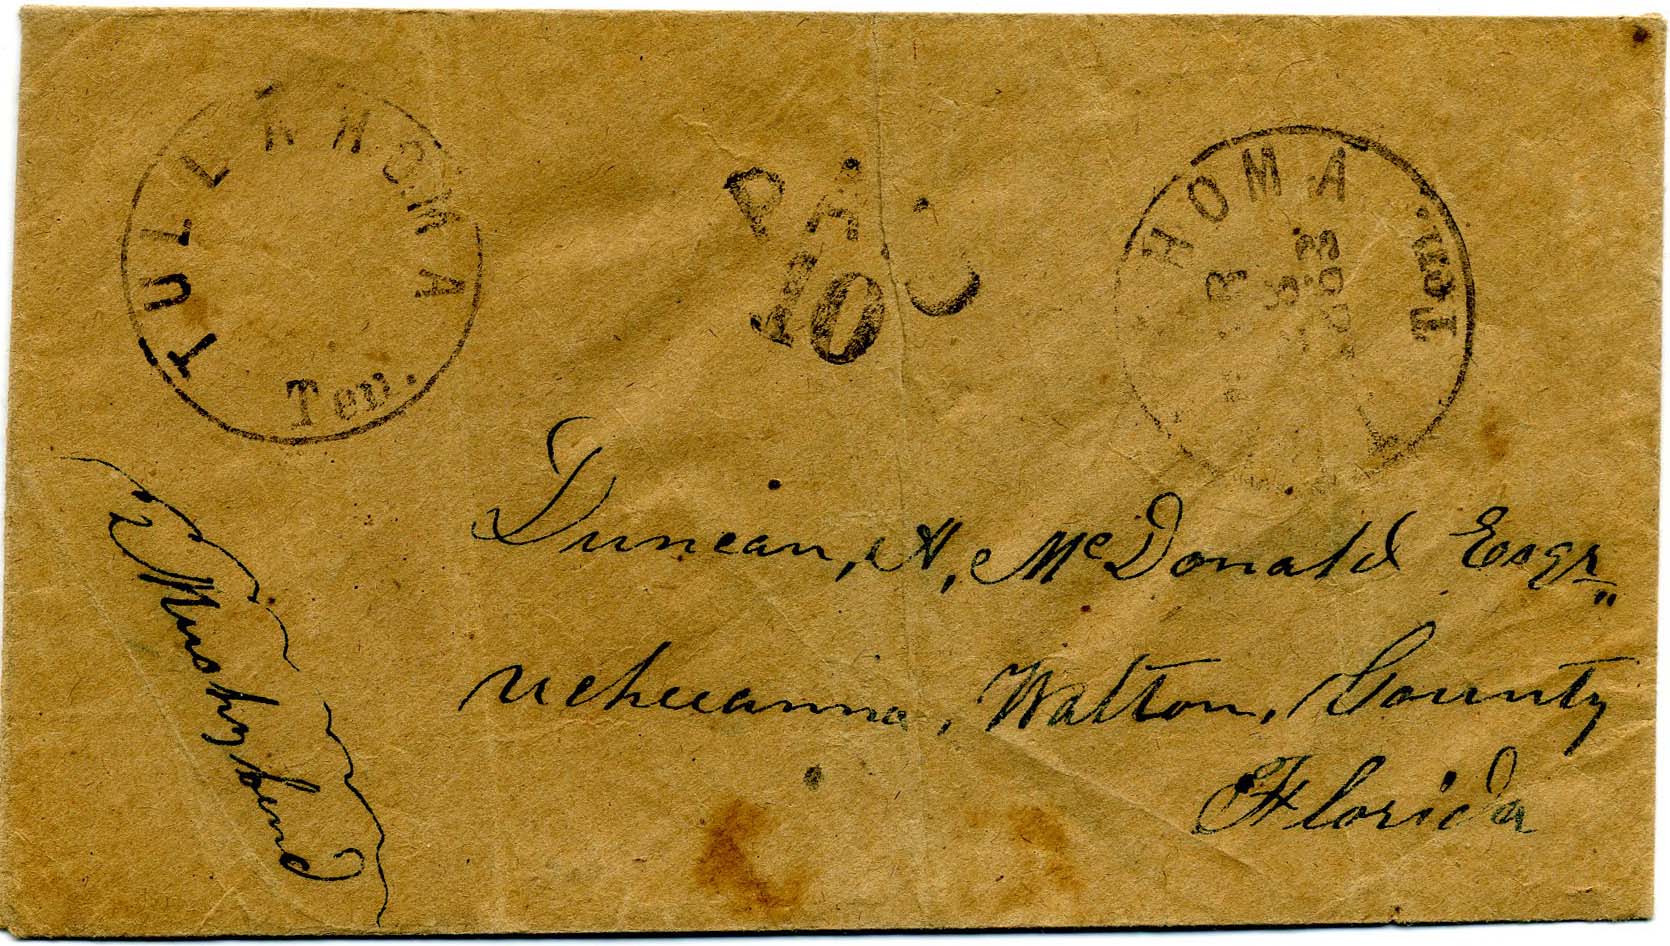 TULLAHOMA
Ten.
PAID
10
HOMA Ten.
Duncan, H, McDonald Esqr
Ucheeanna, Walton, County
Florida